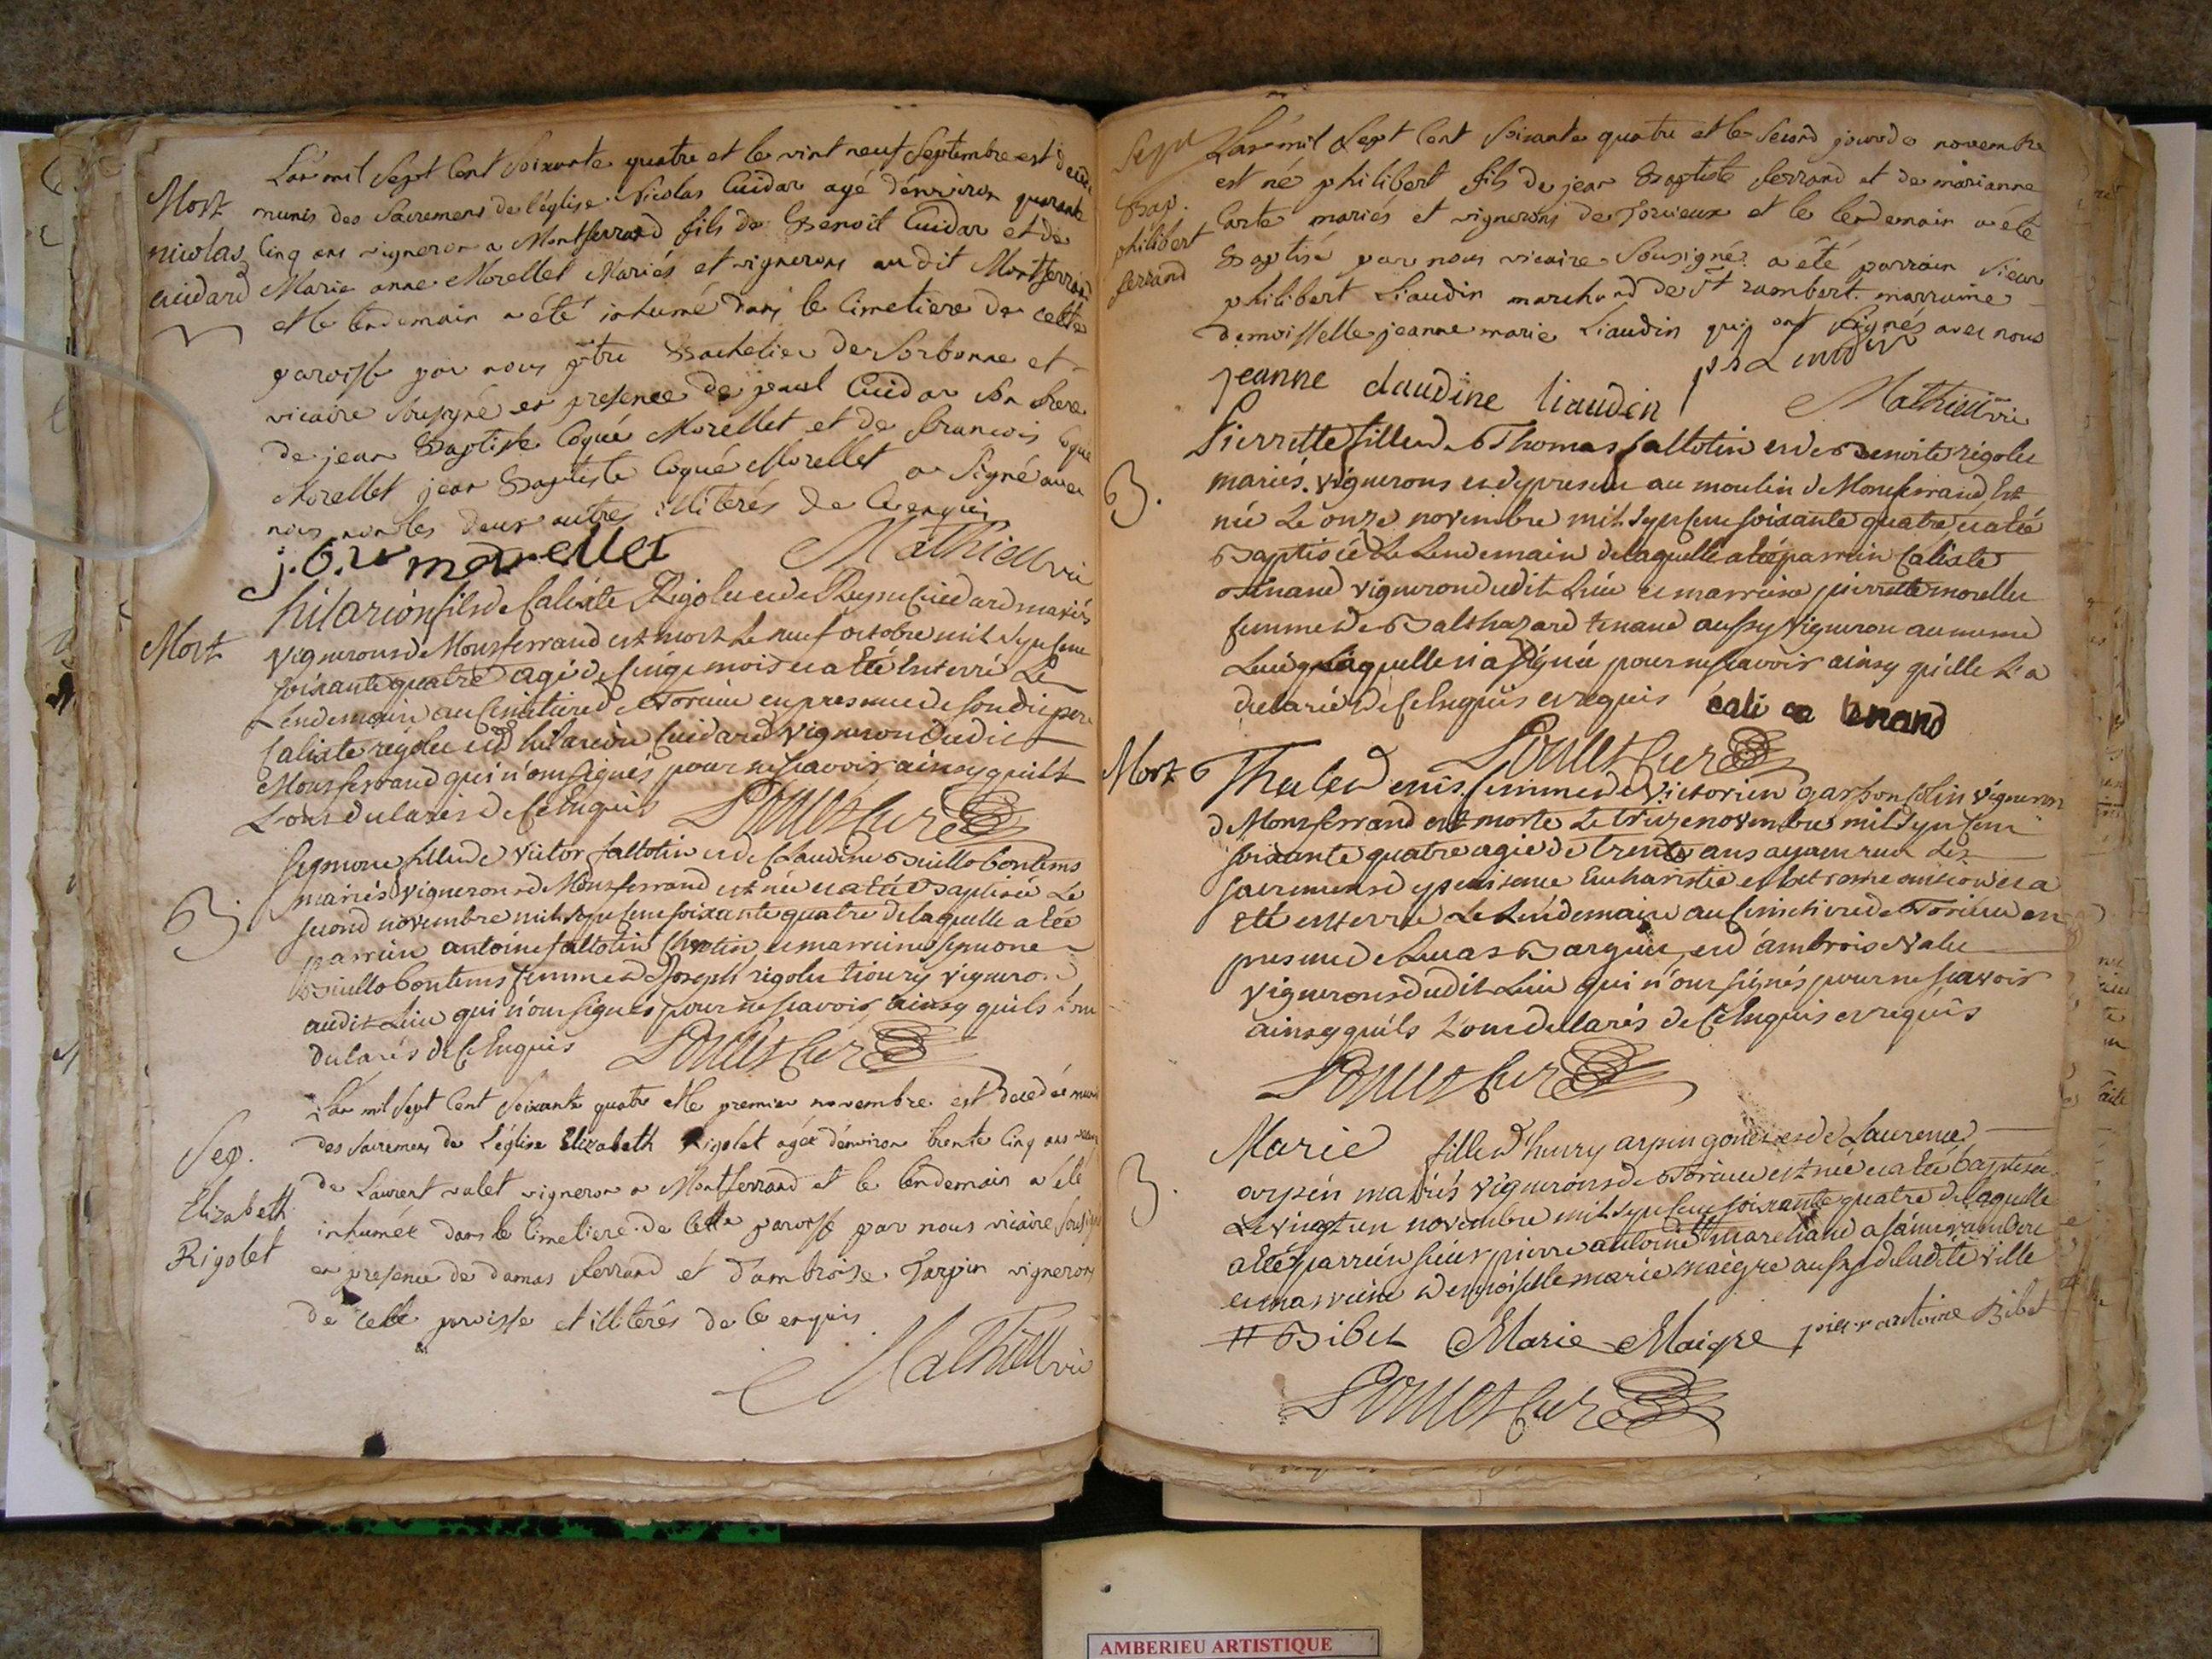 Mort
nicolas
cuidard
L'an mil Sept Cent Soixante quatre et le vint neuf Septembre est
munis des Sacremens de l'église Nicolas Cuidar agé d'environ quarante
Cinq ans vigneron a Montferrand fils de Benoit Cuidar et de
Marie anne Morellet Mariés et vignerons au dit Montferrand
et le lendemain a été inhumé dans le Cimetiere de cette
paroisse par nous ptre Bachelier de Sorbonne et
vicaire Sousigné en presence de Cuidar son frere
de jean Baptiste Coqué Morellet et de francois Coqué
Morellet jean Baptiste Coqué Morellet a Signé avec
nous non les deux autres illiterés de Ce enquis
j.b. morellet Mathieu vic
Mort
hilarion fils de Calixte Rigolet et de Cuidard mariés
vignerons de Montferrand est mort Le neuf octobre mil Sept Cent
soixante quatre agé de Cinq mois et a été Enterré Le
Lendemain au Cimetiere de Torcieu en presence de son dit pere
Calixte rigolet et d'hilarion Cuidard vigneron dudit
Montferrand qui n'ont signés pour ne scavoir ainsy quils
L'ont declarés de Ce Enquis
B
fille de victor fallotin et de Claudine bontems
mariés vignerons de Montferrand est née et a été Baptisée Le
second novembre mil Sept Cent soixante quatre de laquelle a été
parrein antoine fallotin et marreine
bontems femme de Joseph rigolet vigneron
audit Lieu qui n'ont signés pour ne scavoir ainsy quils L'ont
declarés de Ce Enquis
Sep.
Elizabeth
Rigolet
L'an mil Sept Cent Soixante quatre et le premier novembre est decedée munie
des Sacremens de l'église Elizabeth Rigolet agée d'environ trente Cinq ans
de Laurent valet vigneron a Montferrand et le lendemain a été
inhumée dans le Cimetiere de Cette paroisse par nous vicaire Sousigné
en presence de damas ferrand et d'ambroise Tarpin vignerons
de cette paroisse et illiterés de Ce enquis
Mathieu vic
Bap.
philibert
ferrand
L'an mil Sept Cent Soixante quatre et le Second jour de novembre
est né philibert fils de jean Baptiste ferrand et de marianne
Carte mariés et vignerons de Torcieux et le lendemain a été
Baptisé par nous vicaire Sousigné. a été parrain Sieur
philibert Liaudin marchand de St rambert. marraine
demoisselle jeanne marie Liaudin qui ont Signés avec nous
jeanne claudine liaudin
Mathieu vic
B.
Pierrette fille de Thomas fallotin et de Benoite rigolet
mariés vignerons et de present au moulin de Montferrand Est
née Le onze novembre mil Sept Cent soixante quatre et a été
Baptisée Le Lendemain de laquelle a été parrein Calixte
tenand vigneron dudit Lieu et marreine pierrette morellet
femme de Balthazard tenand aussy vigneron au meme
Lieu Laquelle n'a signée pour ne scavoir ainsy qu'elle L'a
declarée de Ce Enquis et requis
tenand
Mort
Thecle denis femme de Victorien garson Colin vigneron
de Montferrand est morte Le treize novembre mil Sept Cent
soixante quatre agée de trente ans ayant receu Les
sacremens de penitence Eucharistie et extreme onction et a
été enterrée Le Lendemain au Cimetiere de Torcieu en
presence de Lucas Barquin et d'ambroise valet
vignerons dudit Lieu qui n'ont signés pour ne scavoir
ainsy quils L'ont declarés de Ce Enquis et requis
B.
Marie fille d'henry arpin et de Laurence
arpin mariés vignerons de Torcieu est née et a été baptisée
Le vingt un novembre mil Sept Cent soixante quatre de laquelle
a été parrein sieur pierre antoine # marchand a saint rambert
et marreine demoiselle marie maigre aussy de ladite ville
# Bibet Marie Maigre pierre antoine Bibet
AMBERIEU ARTISTIQUE